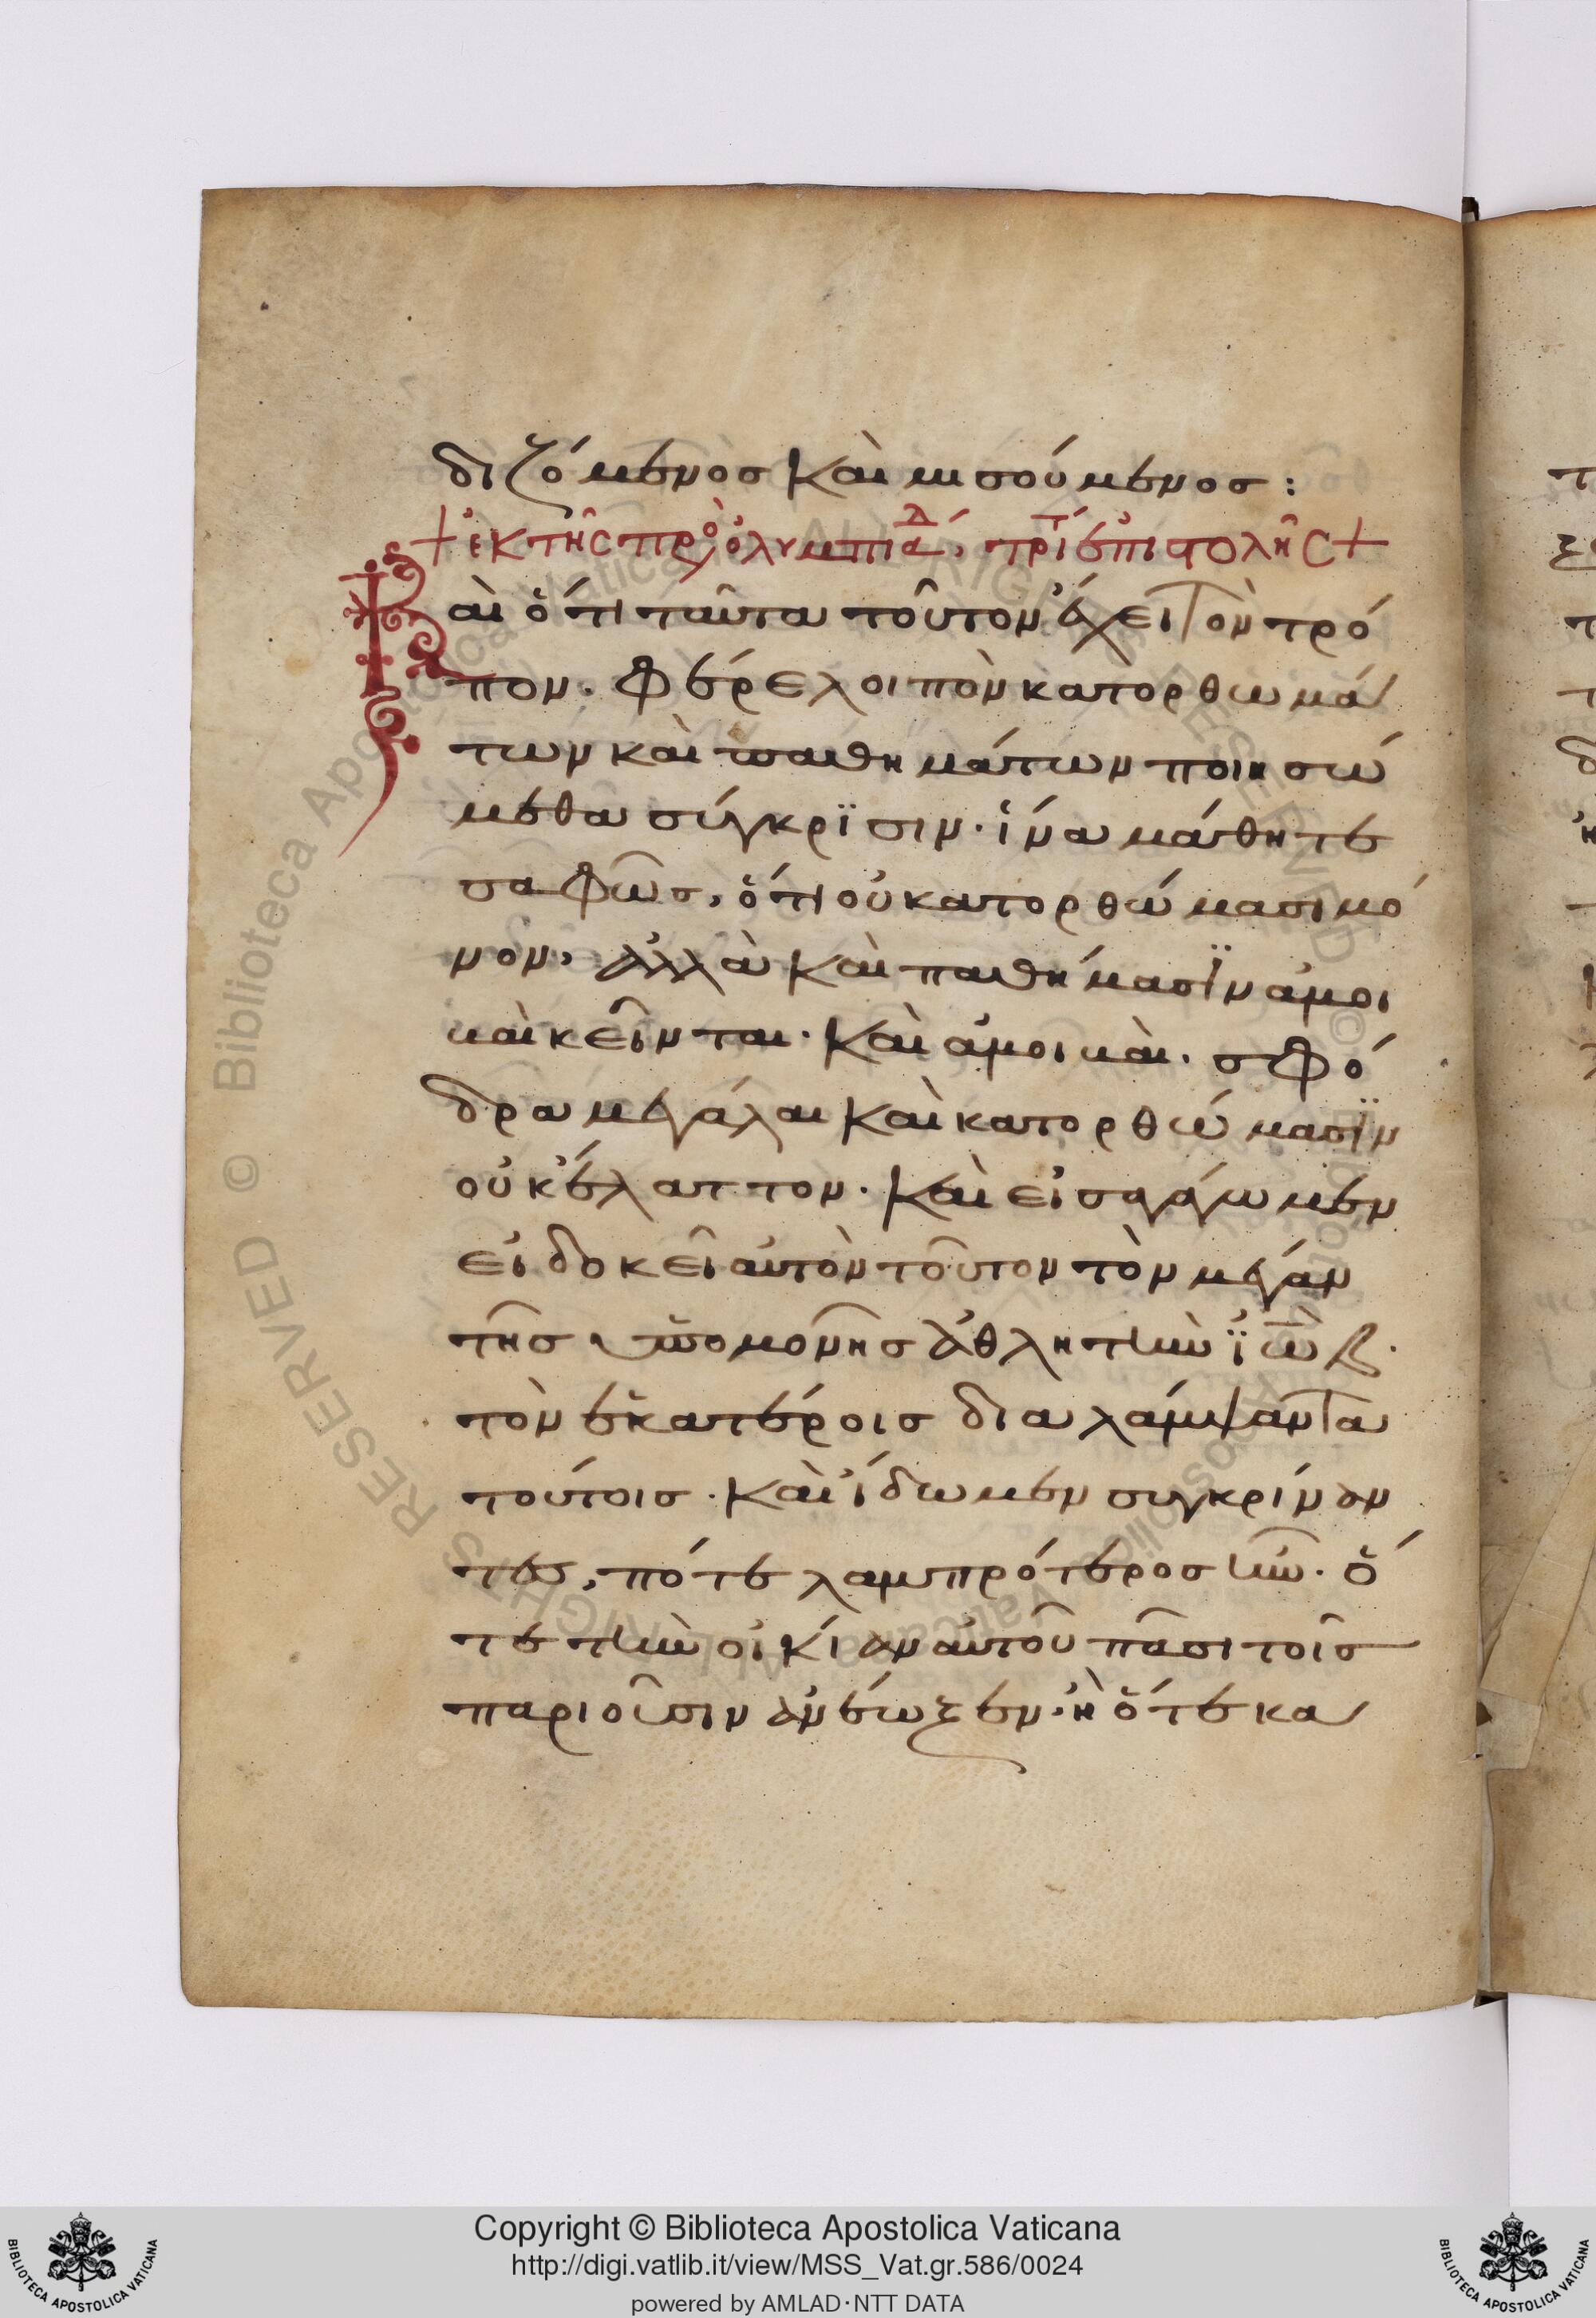 διζόμενος καὶ μισούμενος:
+ ἐκ τῆς πρὸ ὀλυμπιαδ, τρι ἐπιστολῆς +
Καὶ ὅτι ταῦτα τοῦτον ἔχει τὸν τρό
πον. Φέρε λοιπὸν κατορθωμά
των καὶ παθημάτων ποιησώ
μεθα σύγκρϊσιν. ἵνα μάθητε
σαφῶς, ὅτι οὐ κατορθώμασι μό
νον, ἀλλὰ καὶ παθήμασϊν ἀμοι
καὶ κεῖνται. καὶ ἀμοικαὶ. σφό
δρα μεγάλαι καὶ κατορθώμασϊν
οὐκ ἔλαττον. καὶ εἰσαγάγωμεν
εἰ δοκεῖ αὐτὸν τοῦτον τὸν μέγαν
τῆς ὑπομονῆς ἀθλητὴν ϊὼβ.
τὸν ἑκατέροις διαλάμψαντα
τούτοις. καὶ ἴδωμεν συγκρίναν
τες, πότε λαμπρότερος ἦν. ὅ
τε τὴν οἰκίαν αὐτοῦ πᾶσι τοῖς
παριοῦσιν ἀνέωξεν. ἢ ὅτε κα
Copyright © Biblioteca Apostolica Vaticana
http://digi.vatlib.it/view/MSS_Vat.gr.586/0024
powered by AMLAD·NTT DATA
BIBLIOTECA APOSTOLICA VATICANA
BIBLIOTECA APOSTOLICA VATICANA